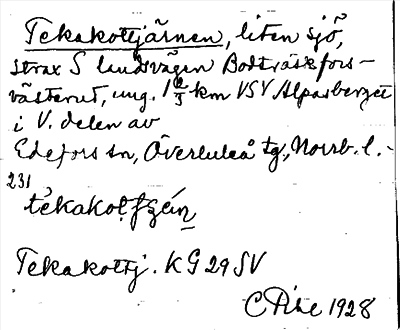 Tekakottjärnen, liten sjö,
strax S landsvägen Bodträskfors-
västerut, ung. 1 2/3 km VSV Alpasberget
i V. delen av
Edefors sn, Överluleå tg., Norrb. l.-
231
Tekakottj. KG 29 SV
C Pihl 1928